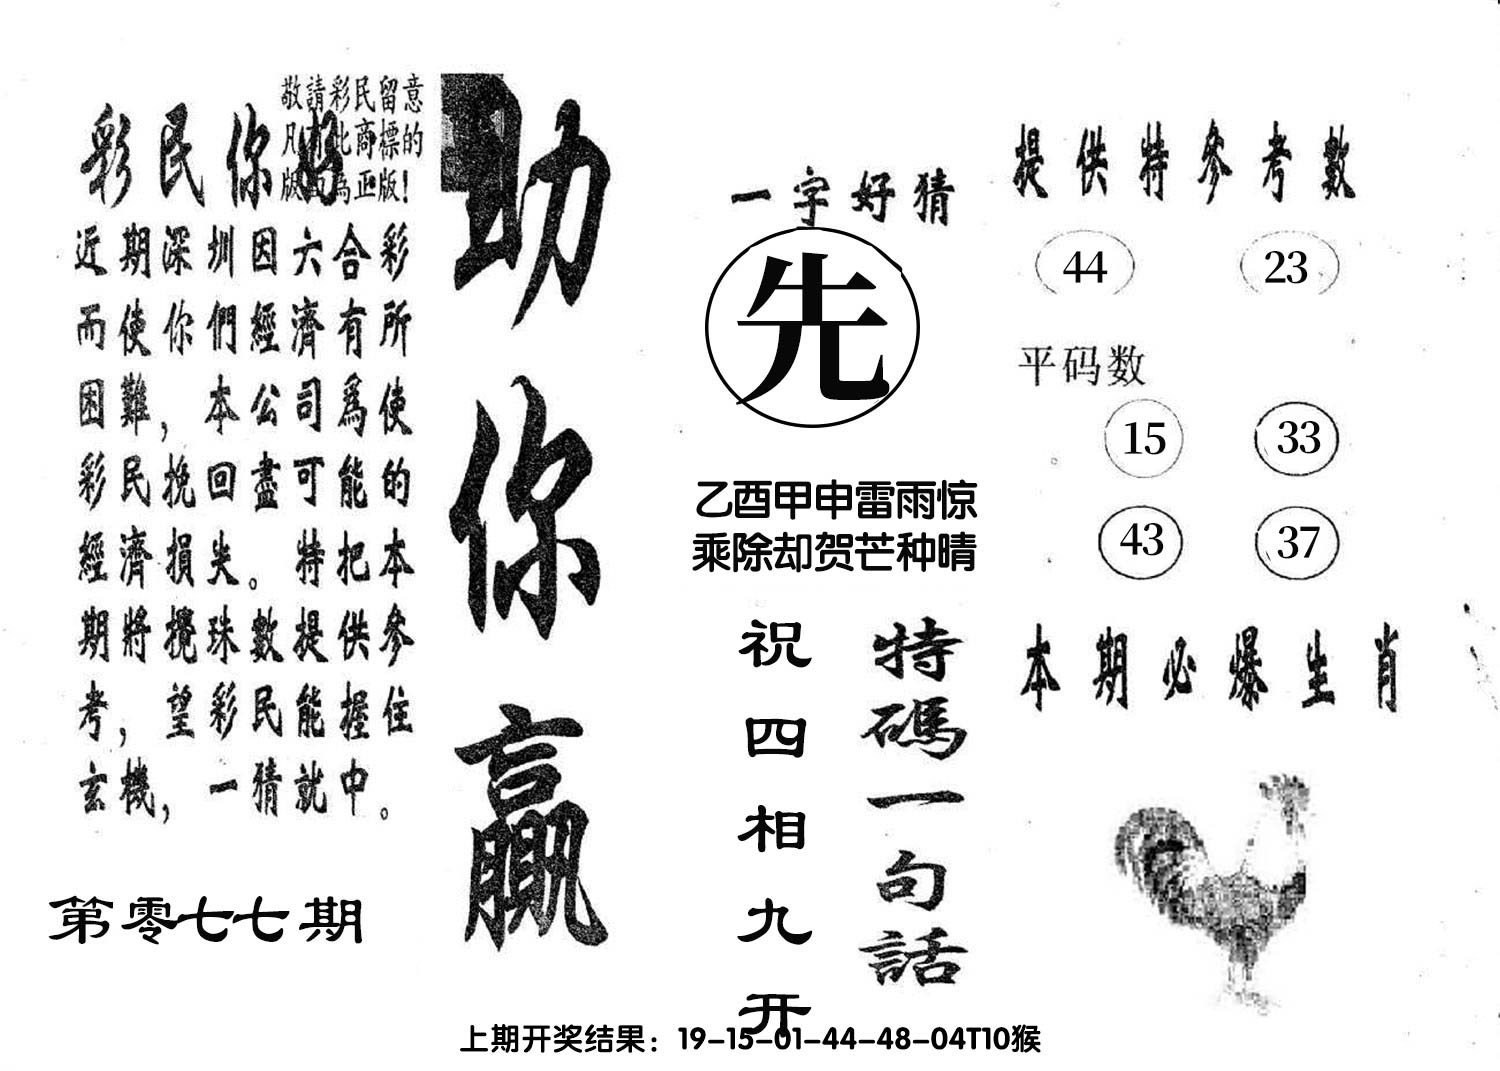 敬請彩民留意
凡有此商標的
版面為正版!
彩民你好
近期深圳因六合彩
而使你們經濟有所
困難，本公司爲使
彩民挽回盡可能的
經濟損失。特把本
期將攪珠數提供參
考，望彩民能握住
玄機，一猜就中。
第零七七期
助你贏
一字好猜
先
乙酉甲申雷雨惊
乘除却贺芒种晴
特碼一句話
祝四相九开
提供特參考數
44 23
平码数
15 33
43 37
本期必爆生肖
上期开奖结果：19-15-01-44-48-04T10猴